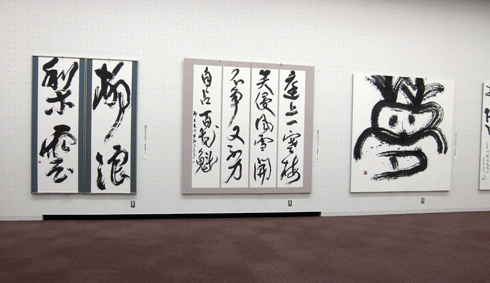 柳浪
梨雲
庭上一寒梅
笑侵風雪開
不争又不力
自占百花魁
夢